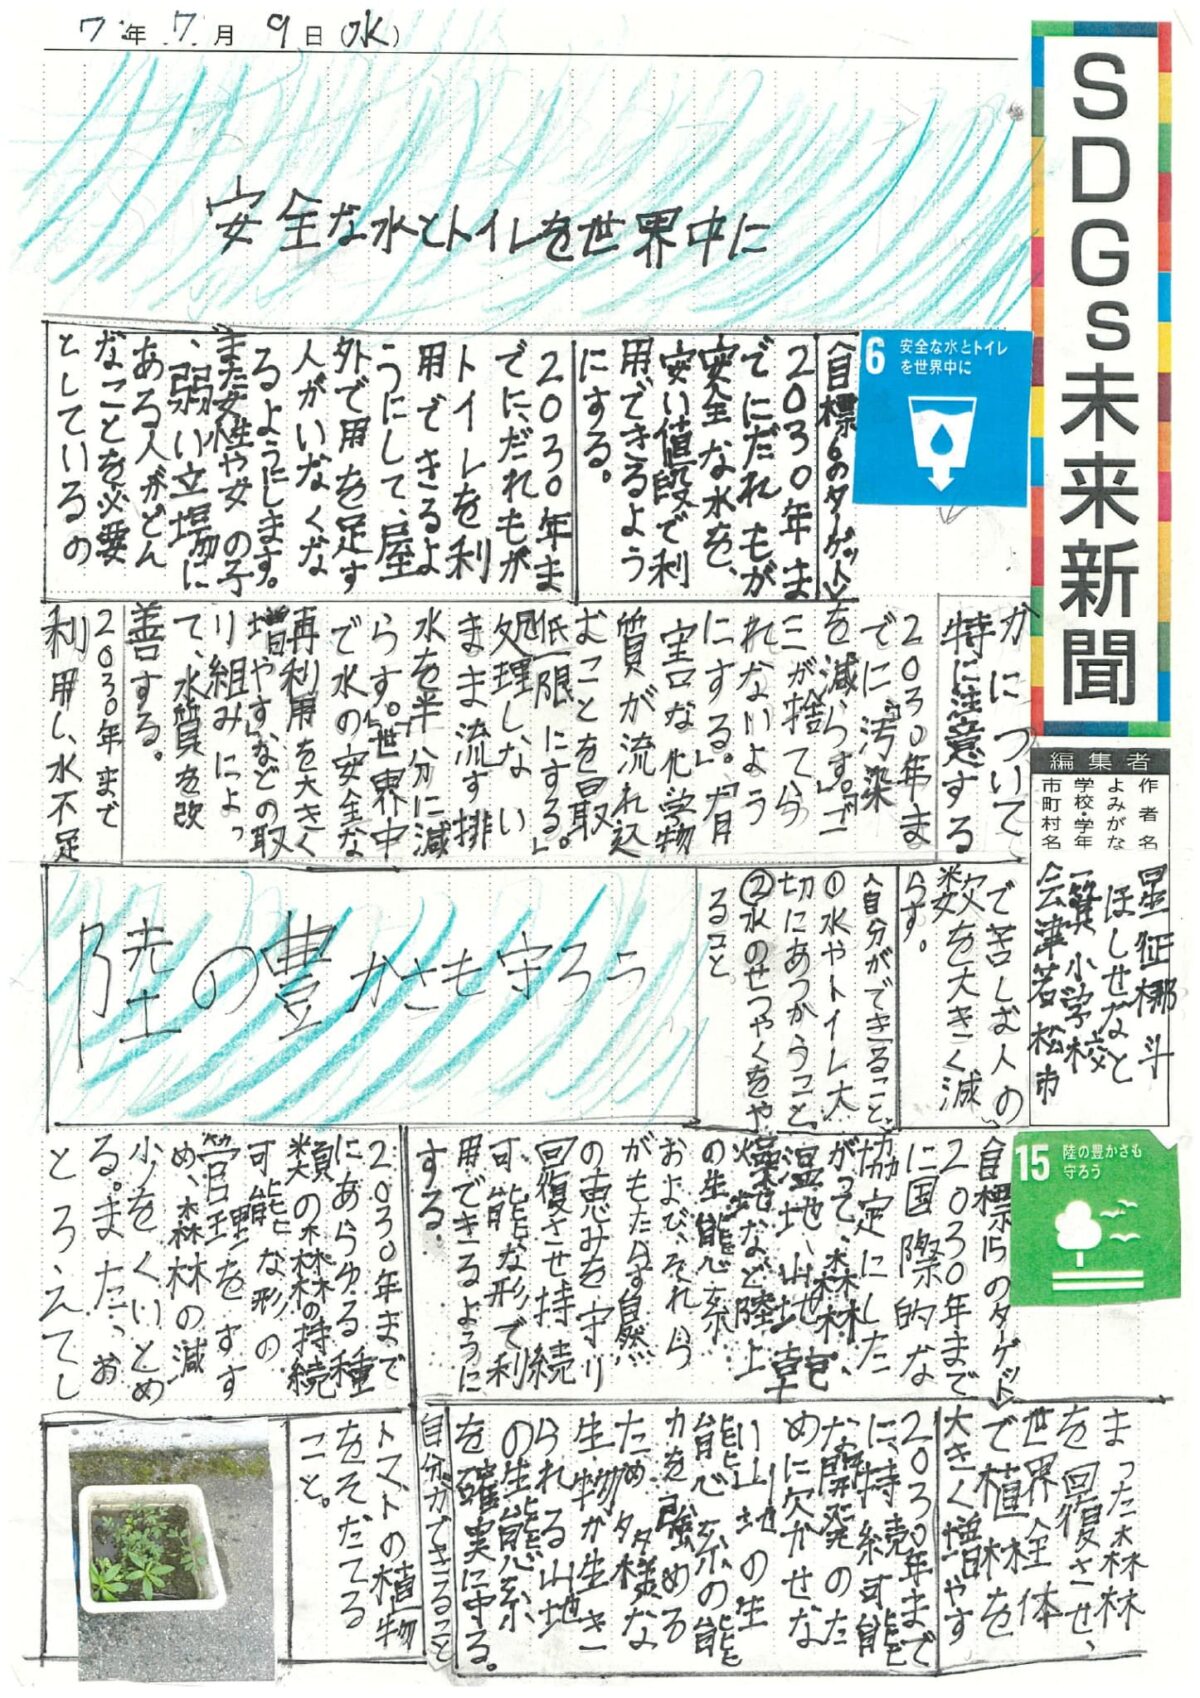 7年7月9日(水)
SDGs未来新聞
編集者
作者名
よみがな
学校・学年
市町村名
ほしせなと
一箕小学校
会津若松市
安全な水とトイレを世界中に
6 安全な水とトイレ
を世界中に
〈目標6のターゲット〉
2030年ま
でにだれもが
安全な水を、
安い値段で利
用できるよう
にする。
2030年ま
でに、だれもが
トイレを利
用できるよ
うにして、屋
外で用を足す
人がいなくな
るようにします。
また女性や女の子
、弱い立場に
ある人がどん
なことを必要
としているの
かについて
特に注意する
2030年ま
でに、「汚染
を減らす。」「ゴ
ミが捨てら
れないよう
にする。」「有
害な化学物
質が流れ込
むことを最
低限にする」
処理しない
まま流す排
水を半分に減
らす。「世界中
で水の安全な
再利用を大きく
増やす」などの取
り組みによっ
て、水質を改
善する。
2030年まで
利用し、水不足
で苦しむ人の
数を大きく減
らす。
〈自分ができること〉
①水やトイレ大
切にあつかうこと。
②水のせつやくをや
ること
陸の豊かさも守ろう
15 陸の豊かさも
守ろう
〈目標15のターゲット〉
2030年まで
に国際的な
協定にした
がって、森林、
湿地、山地、草
燥地など陸上
の生態系
および、それら
がもたらす自然
の恵みを守り
回復させ持続
可能な形で利
用できるように
する。
2030年まで
にあらゆる種
類の森林の持続
可能な形の
管理をすす
め、森林の減
少をくいとめ
る。また、お
とろえてし
まった森林
を回復させ、
世界全体
で植林を
大きく増やす
2030年まで
に、持続可能
な開発のた
めに欠かせな
い山地の生
態系の能
力を強める
ため、多様な
生物が生き
られる山地
の生態系
を確実に守る。
自分ができること
トマトの植物
をそだてる
こと。